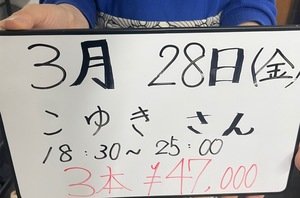 3月 28日(金)
こゆき さん
18:30～25:00
3本 ¥47,000